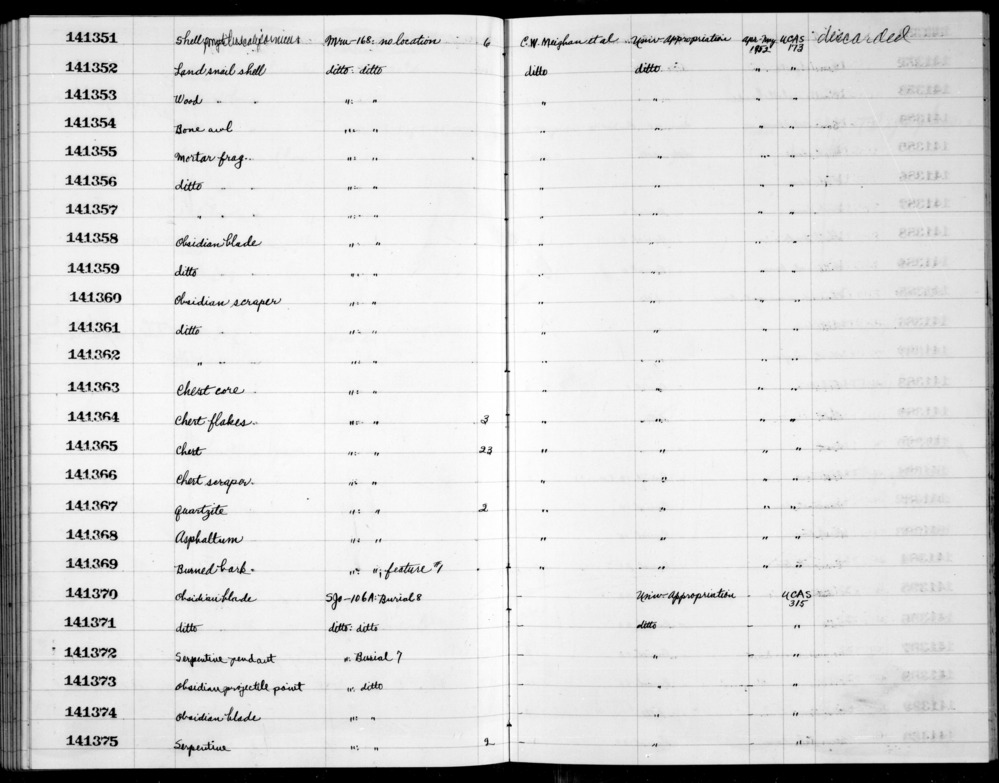 141351 Shell Mrn-168: no location 6 C.W. Meighan et al Univ. Appropriation Apr-May 1952 UCAS 173 discarded
141352 Land snail shell ditto: ditto ditto ditto " "
141353 Wood " " ": " " " " "
141354 Bone awl ": " " " " "
141355 Mortar frag. ": " " " " "
141356 ditto " " ": " " " " "
141357 " " " ": " " " " "
141358 Obsidian blade ": " " " " "
141359 ditto " " ": " " " " "
141360 Obsidian scraper ": " " " " "
141361 ditto " ": " " " " "
141362 " " ": " " " " "
141363 Chert core ": " " " " "
141364 Chert flakes ": " 3 " " " "
141365 Chert ": " 23 " " " "
141366 Chert scraper ": " " " " "
141367 Quartzite ": " 2 " " " "
141368 Asphaltum ": " " " " "
141369 Burned bark ": "; feature #1 " " " "
141370 Obsidian blade SJo-106A: Burial 8 - Univ. Appropriation - UCAS 315
141371 ditto ditto: ditto - ditto - "
141372 Serpentine pendant ": Burial 7 - " - "
141373 Obsidian projectile point ": ditto - " - "
141374 Obsidian blade ": " - " - "
141375 Serpentine ": " 2 - " - "